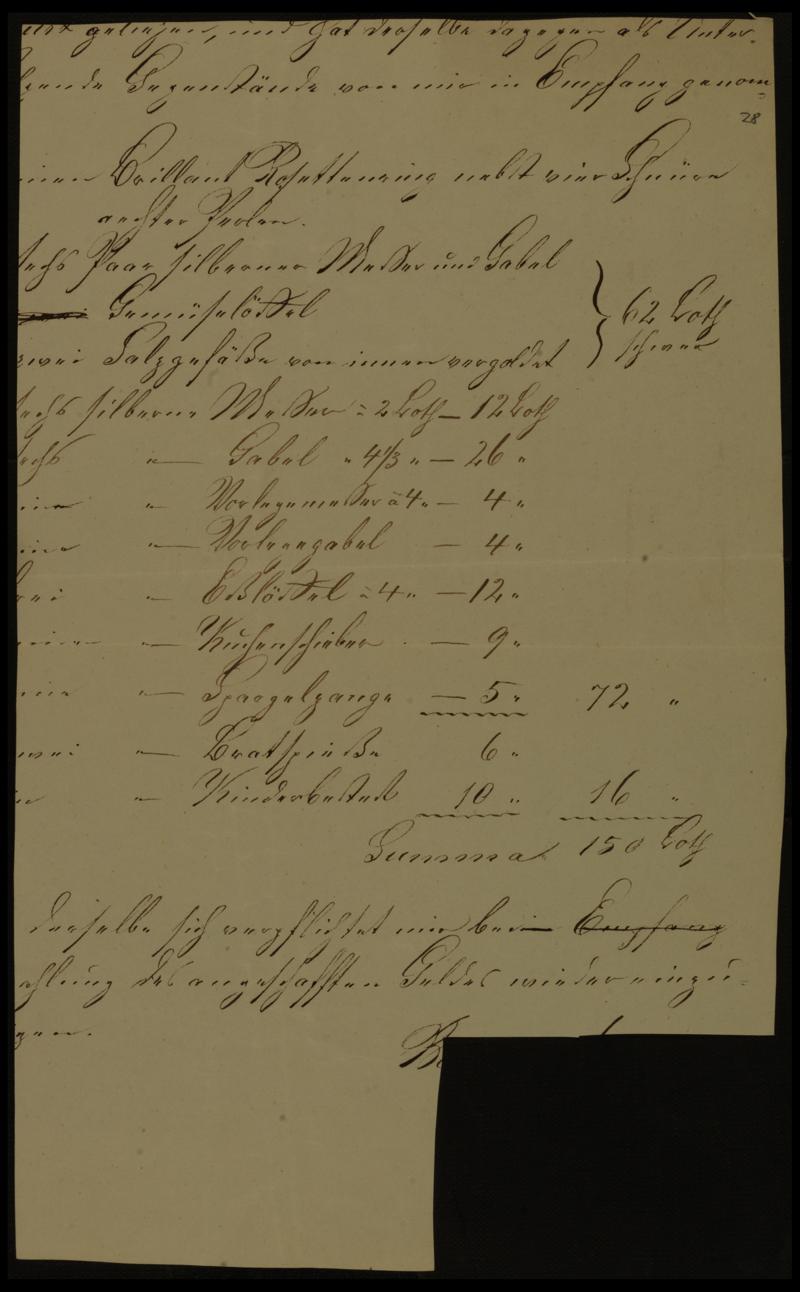 geliehen, und hat derselbe dagegen als Unter-
gende Gegenstände von mir in Empfang genom=
28
inen Brillant Rosettenring nebst vier Schnüre
aechter Perlen.
sechs Paar silberner Messer und Gabel
Gemüselöffel
62 Loth
zwei Salzgefäße von innen vergoldet
schwer
sechs silberne Messer à 2 Loth — 12 Loth
sechs " — Gabel " 4 1/3 " — 26 "
ein " Vorlegemesser à 4 " — 4 "
eine " — Vorlegegabel — 4 "
drei " — Eßlöffel à 4 " — 12 "
einen " — Kuchenschieber — 9 "
eine " — Spargelzange — 5 " 72 "
zwei " — Bratspieße 6 "
in " — Kinderbesteck 10 " 16 "
Summa 150 Loth
derselbe sich verpflichtet mir bei Empfang
ahlung des angeschafften Geldes wieder einzu=
gen.